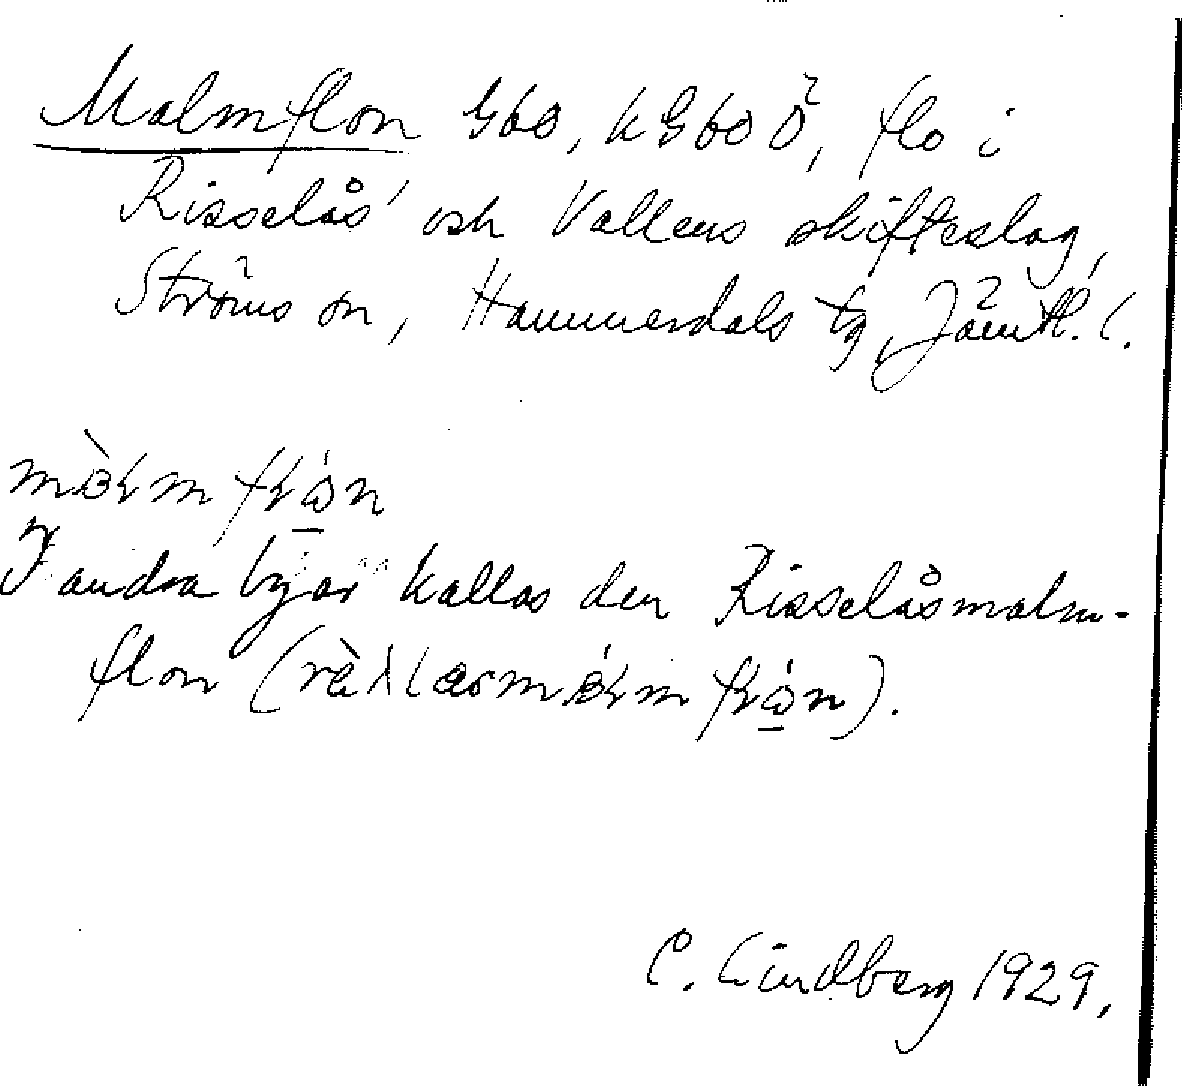 Malmflon G60, kG60 Ö, flo i
Risselås' och Vallens skifteslag,
Ströms sn, Hammerdals tg, Jämtl. l.
I andra byar kallas den Risselåsmalm-
flon
C. Lindberg 1929.